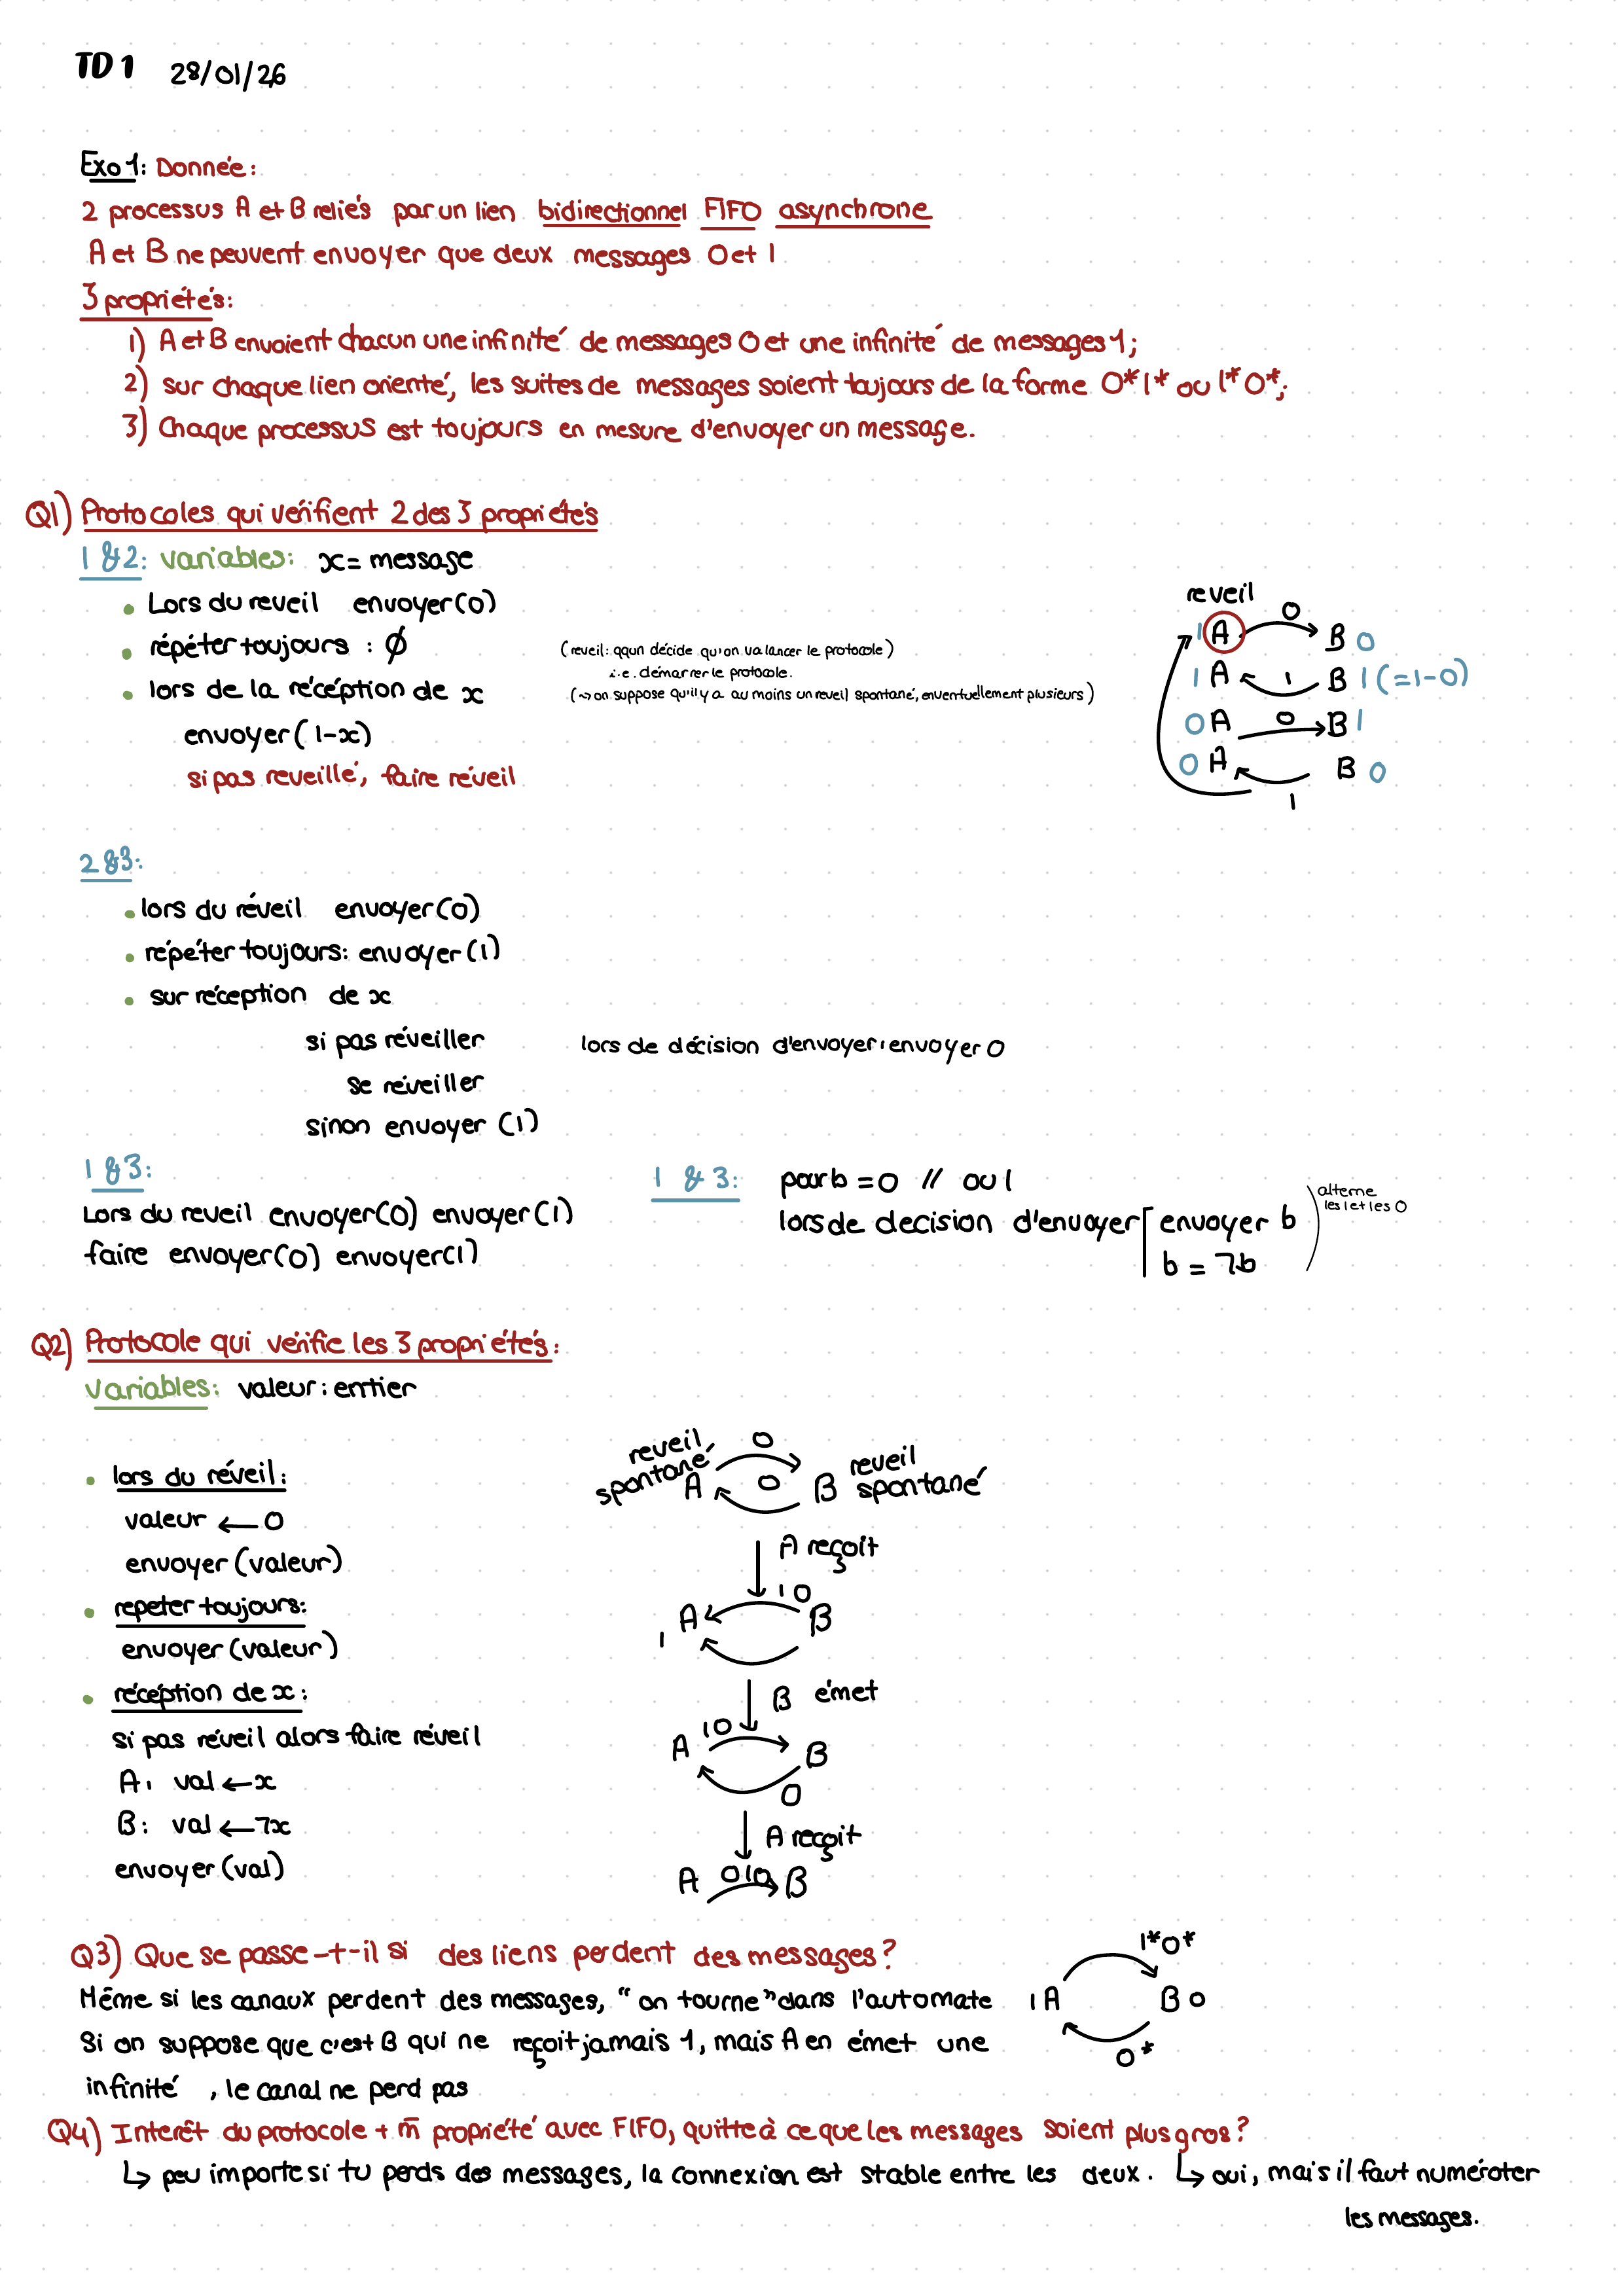 TD 1 28/01/26
Exo 1: Donnée:
2 processus A et B reliés par un lien bidirectionnel FIFO asynchrone
A et B ne peuvent envoyer que deux messages 0 et 1
3 propriétés:
1) A et B envoient chacun une infinité de messages 0 et une infinité de messages 1;
2) sur chaque lien orienté, les suites de messages soient toujours de la forme 0*1* ou 1*0*;
3) Chaque processus est toujours en mesure d'envoyer un message.
Q1) Protocoles qui vérifient 2 des 3 propriétés
1 & 2: variables: x = message
• Lors du reveil envoyer(0)
• répéter toujours : ∅
• lors de la récéption de x
envoyer(1-x)
si pas reveillé, faire réveil
(reveil: qqun décide qu'on va lancer le protocole)
i.e. démarrer le protocole.
(→ on suppose qu'il y a au moins un reveil spontané, enventuellement plusieurs)
reveil
1 A 0 B 0
1 A 1 B 1 (=1-0)
0 A 0 B 1
0 A B 0
1
2 & 3:
• lors du réveil envoyer(0)
• répéter toujours: envoyer(1)
• sur réception de x
si pas réveiller lors de décision d'envoyer: envoyer 0
se réveiller
sinon envoyer (1)
1 & 3:
Lors du reveil envoyer(0) envoyer(1)
faire envoyer(0) envoyer(1)
1 & 3: par b = 0 // ou 1
lors de decision d'envoyer envoyer b
b = ¬b
alterne
les 1 et les 0
Q2) Protocole qui vérifie les 3 propriétés:
variables: valeur: entier
• lors du réveil:
valeur ← 0
envoyer(valeur)
• repeter toujours:
envoyer(valeur)
• réception de x:
si pas réveil alors faire réveil
A: val ← x
B: val ← ¬x
envoyer(val)
reveil
spontané
A 0 0 B
reveil
spontané
A reçoit
1 0
1 A B
B émet
1 0
A B
0
A reçoit
A 010 B
Q3) Que se passe-t-il si des liens perdent des messages?
Même si les canaux perdent des messages, "on tourne" dans l'automate
Si on suppose que c'est B qui ne reçoit jamais 1, mais A en émet une
infinité, le canal ne perd pas
1*0*
1 A B 0
0*
Q4) Interêt du protocole + m̄ propriété avec FIFO, quitte à ce que les messages soient plus gros?
↳ peu importe si tu perds des messages, la connexion est stable entre les deux. ↳ oui, mais il faut numéroter
les messages.